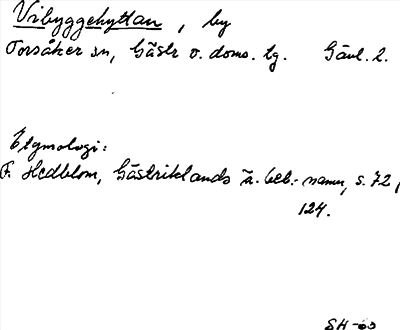 Vibyggehyttan, by
Torsåker sn, Gästr v. doms. tg. Gävl. l.
Etymologi:
F. Hedblom, Gästriklands ä. beb.- namn, s. 72,
124.
SH -63